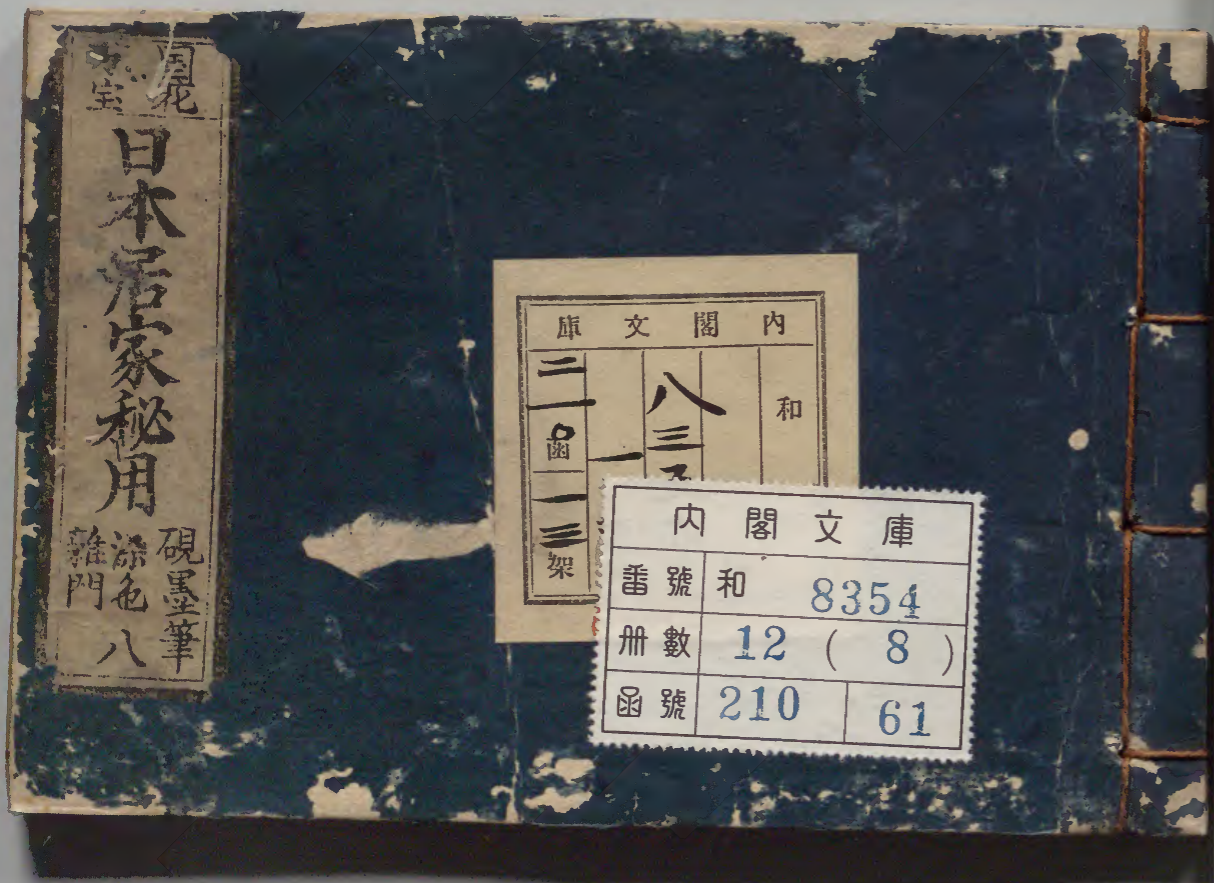 日本居家秘用
硯墨筆
染色
雜門
八
内閣文庫
和
八三五
一
二一〇函
一三架
内閣文庫
番號 和 8354
册數 12 ( 8 )
函號 210 61